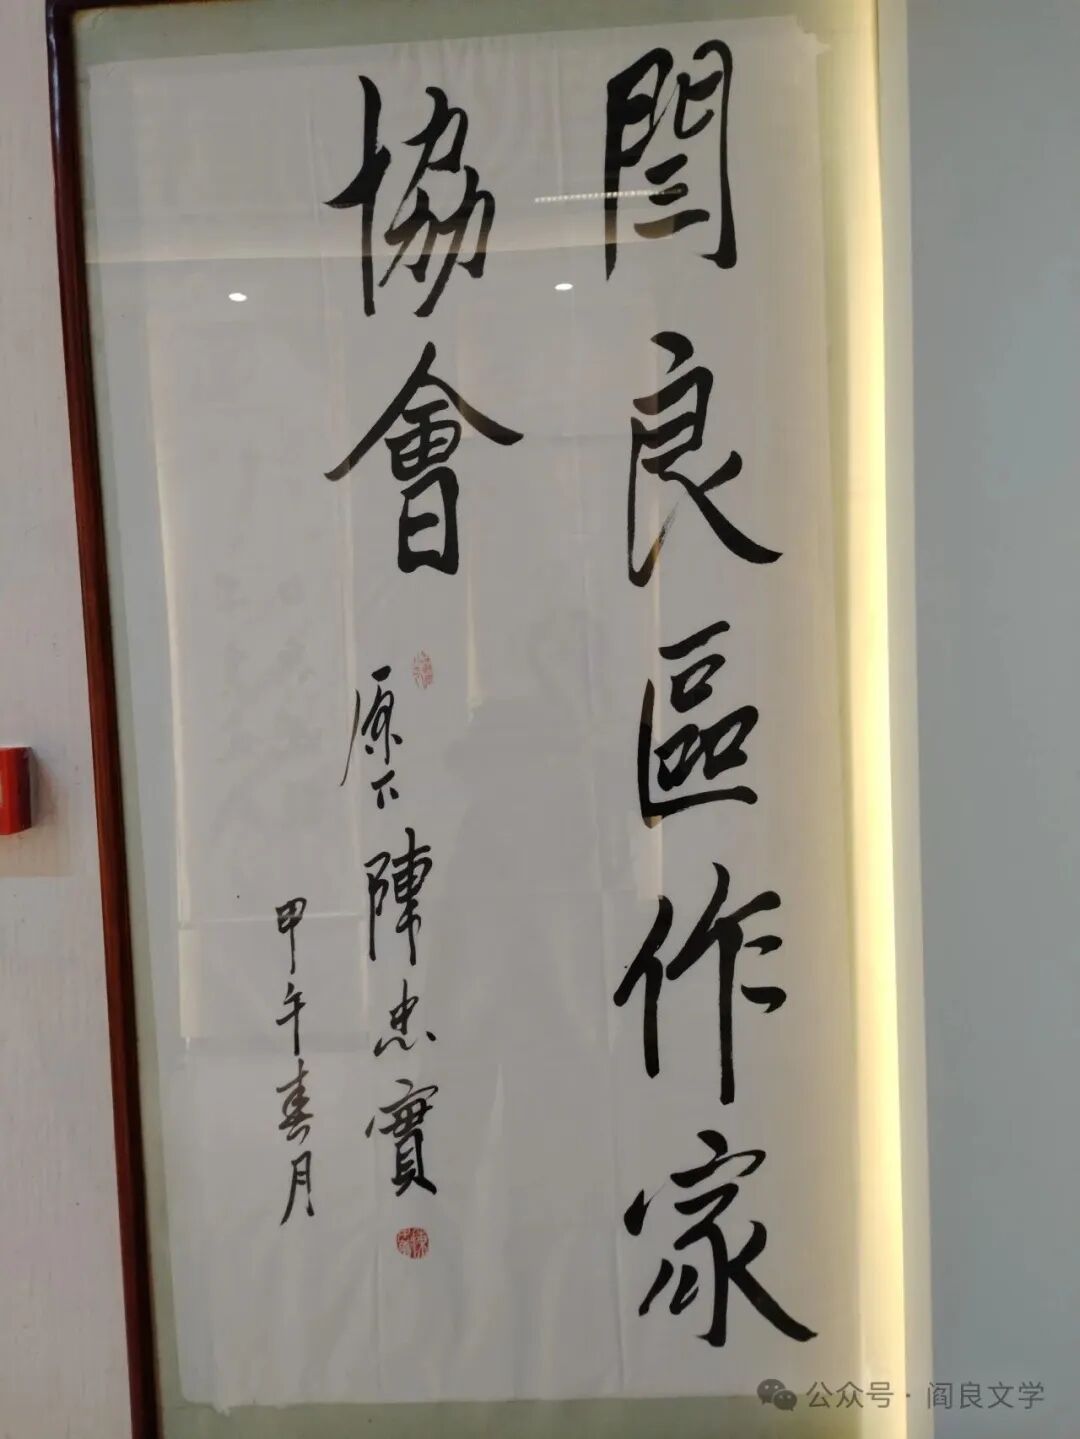 閆良區作家
協會
原下陳忠實
甲午春月
公众号·阎良文学